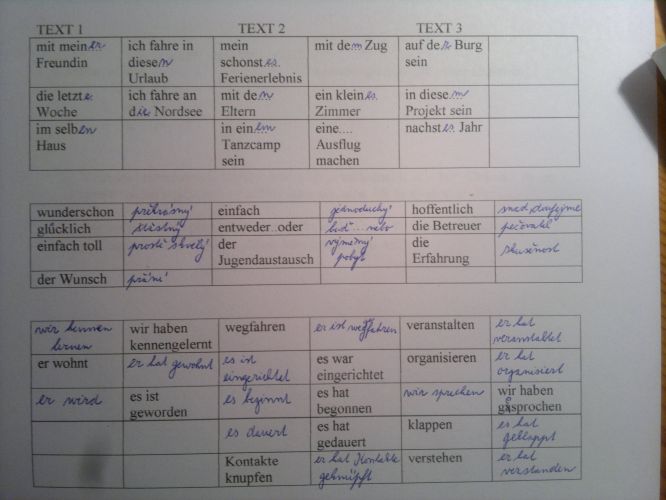 TEXT 1 TEXT 2 TEXT 3
mit meiner ich fahre in mein mit dem Zug auf der Burg
Freundin diesem schonstes sein
Urlaub Ferienerlebnis
die letzte ich fahre an mit den ein kleines in diesem
Woche die Nordsee Eltern Zimmer Projekt sein
im selben in einem eine.... nachstes Jahr
Haus Tanzcamp Ausflug
sein machen
wunderschon překrásný einfach jednoduchý hoffentlich snad, doufejme
glücklich šťastný entweder..oder buď...nebo die Betreuer pečovatel
einfach toll prostě skvělý der výměnný die zkušenost
Jugendaustausch pobyt Erfahrung
der Wunsch přání
wir kennen wir haben wegfahren er ist weg veranstalten er hat
lernen kennengelernt veranstaltet
er wohnt er hat gewohnt es ist es war organisieren er hat
eingerichtet eingerichtet organisiert
er wird es ist es beginnt es hat wir sprechen wir haben
geworden begonnen gesprochen
es dauert es hat klappen es hat
gedauert geklappt
Kontakte er hat Kontakte verstehen er hat
knupfen geknüpft verstanden